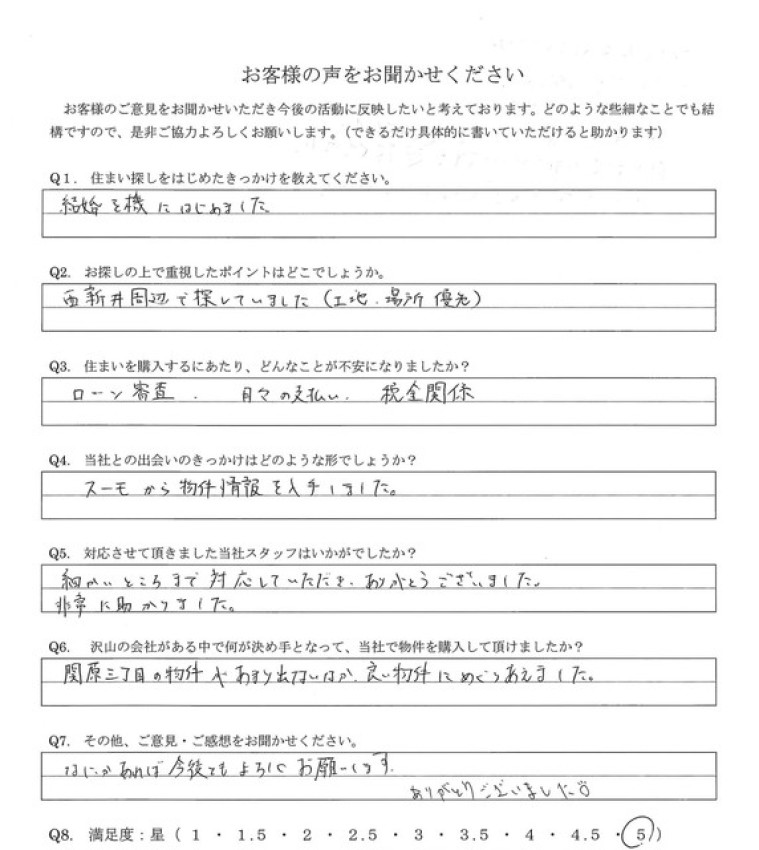 お客様の声をお聞かせください
お客様のご意見をお聞かせいただき今後の活動に反映したいと考えております。どのような些細なことでも結
構ですので、是非ご協力よろしくお願いします。(できるだけ具体的に書いていただけると助かります)
Q1. 住まい探しをはじめたきっかけを教えてください。
結婚を機にはじめました
Q2. お探しの上で重視したポイントはどこでしょうか。
西新井周辺で探していました(土地、場所優先)
Q3. 住まいを購入するにあたり、どんなことが不安になりましたか?
ローン審査、月々の支払い、税金関係
Q4. 当社との出会いのきっかけはどのような形でしょうか?
スーモから物件情報を入手しました。
Q5. 対応させて頂きました当社スタッフはいかがでしたか?
細かいところまで対応していただき、ありがとうございました。
非常に助かりました。
Q6. 沢山の会社がある中で何が決め手となって、当社で物件を購入して頂けましたか?
関原三丁目の物件があまり出ないなか、良い物件にめぐりあえました。
Q7. その他、ご意見・ご感想をお聞かせください。
なにかあれば今後ともよろしくお願いします。
ありがとうございました
Q8. 満足度:星( 1 ・ 1.5 ・ 2 ・ 2.5 ・ 3 ・ 3.5 ・ 4 ・ 4.5 ・ 5 )